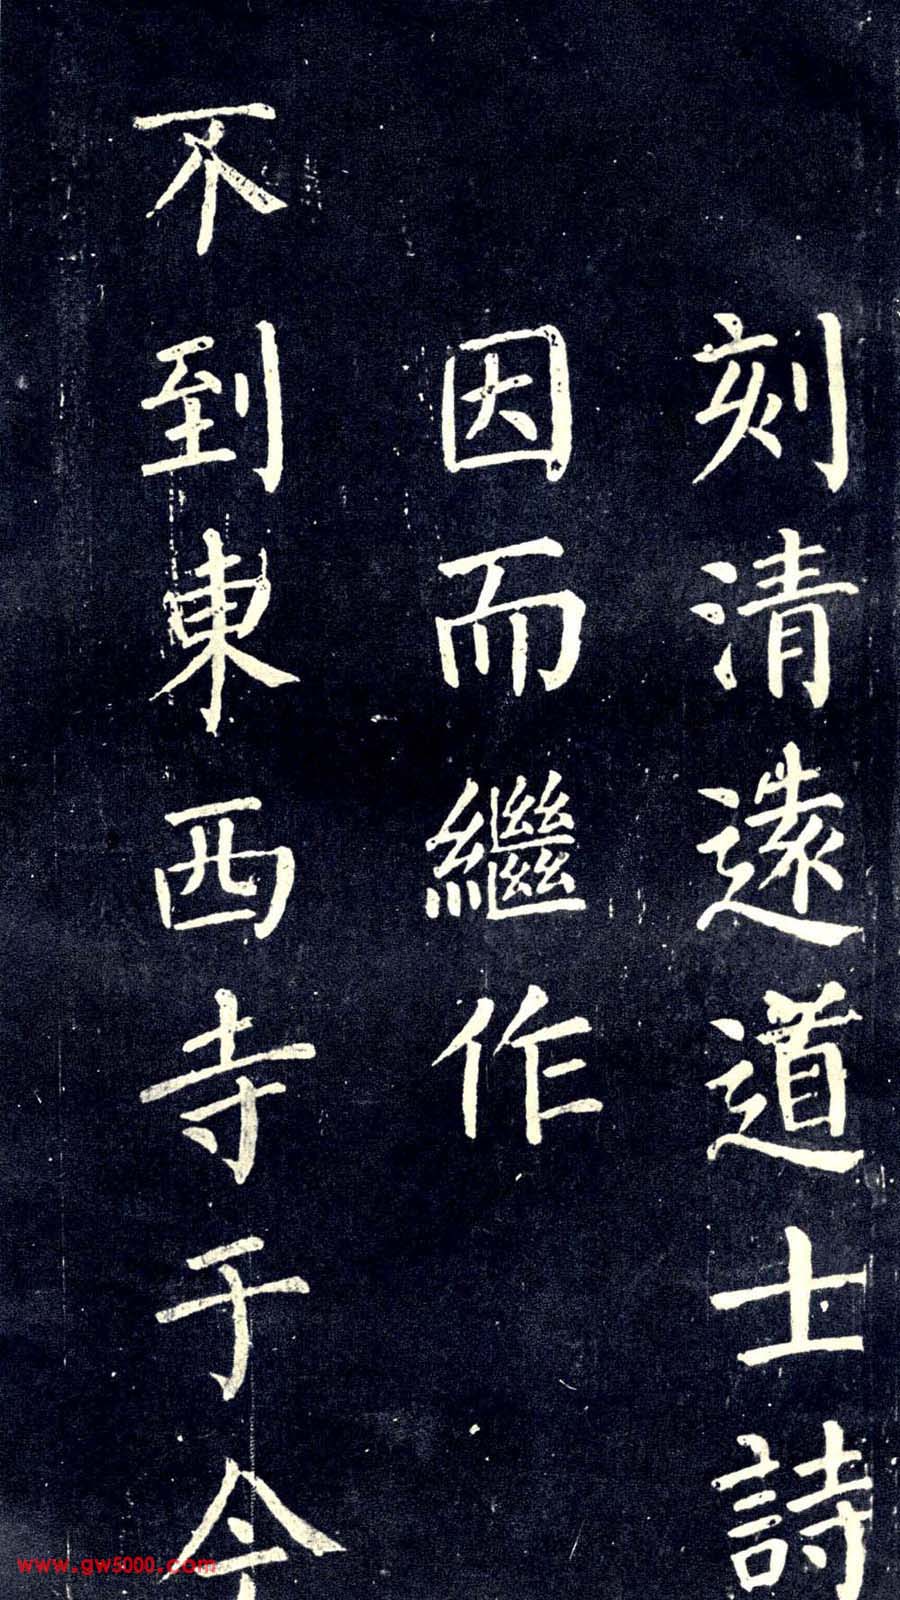 刻清遠道士詩
因而繼作
不到東西寺于今
www.gw5000.com